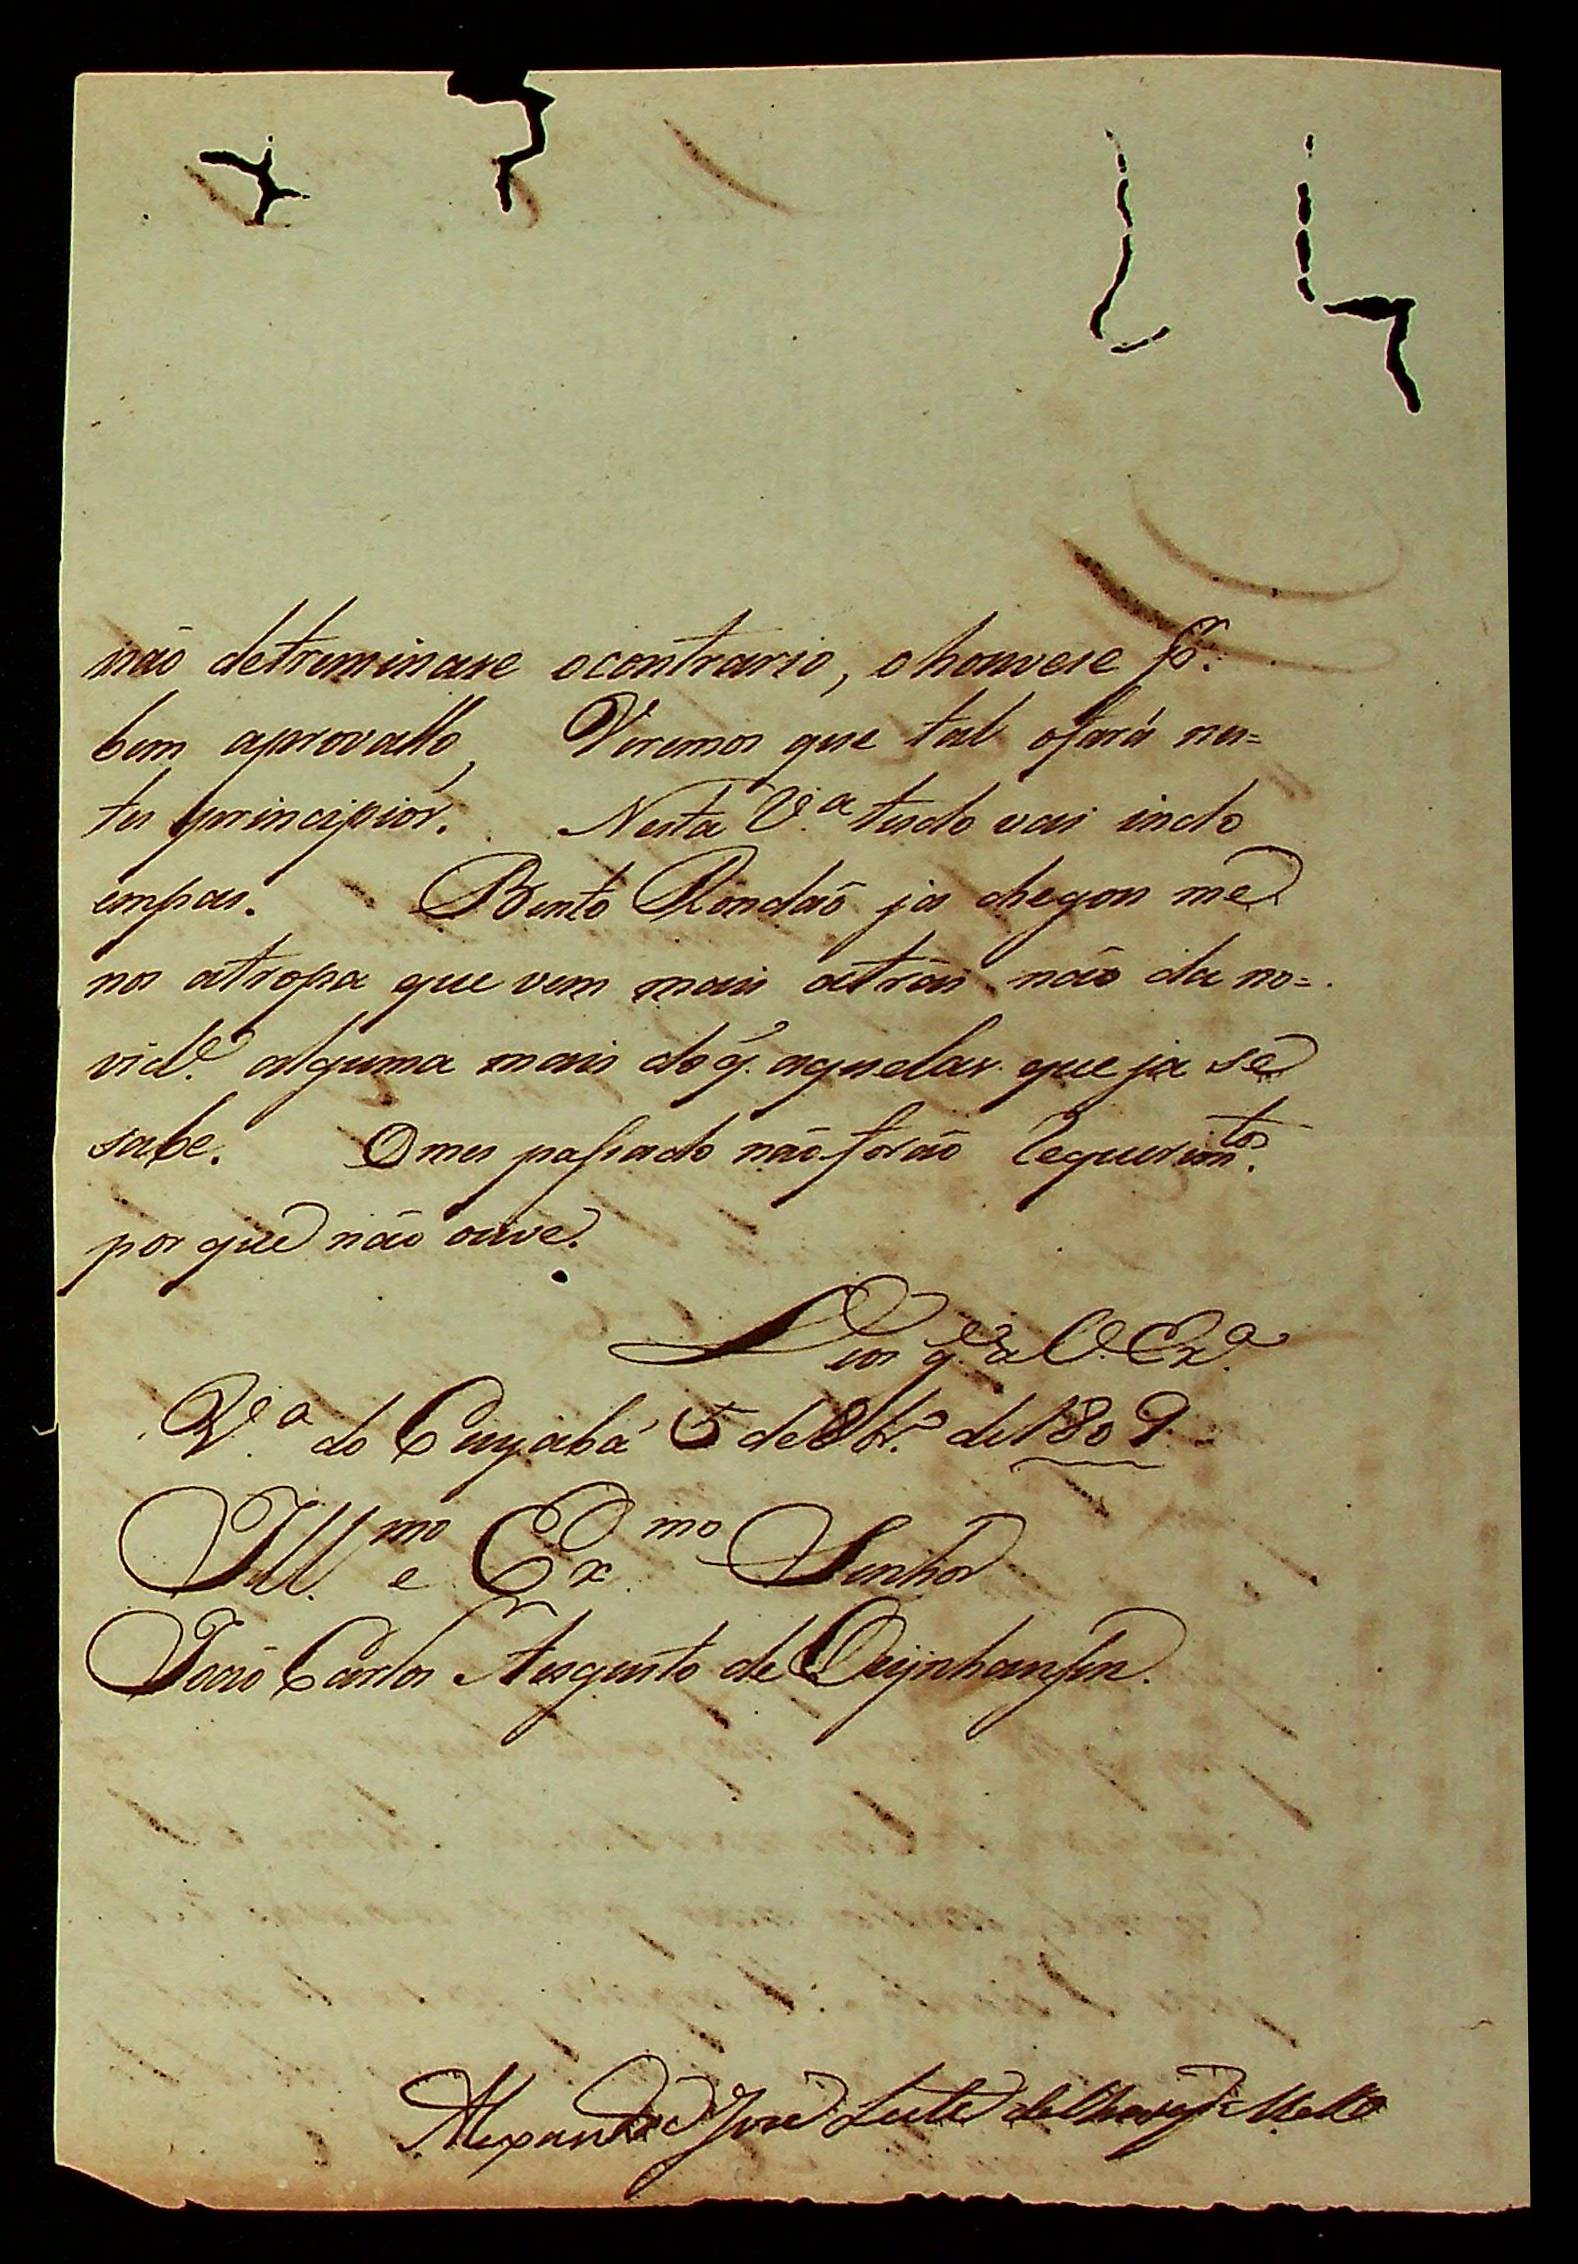 não detreminase ocontrario, ohouvese p.r
bem aprovallo, Viremos que tal ofará nes=
tes principios. Nesta V.a tudo vai indo
empas. Bento Rondão ja chegou me
nos atropa que vem mais atras não da no=
vid.e alguma mais doq. aquelas que ja se
sabe. Omes passado não forão Requerim.tos
por que não ouve.
Deos g.e a V. Ex.a
V.a do Cuyabá 5 de 8br.o de 1809
Ill.mo e Ex.mo Senhor
João Carlos Augusto de Oeynhausen.
Alexandre Jose Leite de Chaves Mello